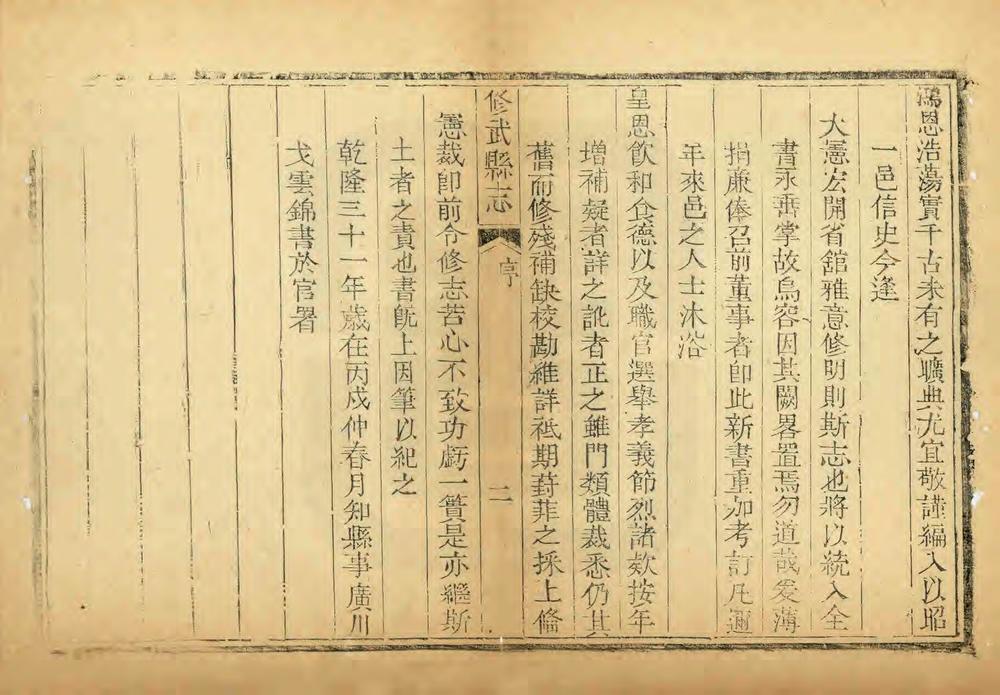 鴻恩浩蕩實千古未有之曠典尤宜敬謹編入以昭
一邑信史今逢
大憲宏開省舘雅意修明則斯志也將以統入全
書永垂掌故烏容因其闕畧置焉勿道哉爰薄
捐廉俸召前董事者即此新書重加考訂凡邇
年來邑之人士沐浴
皇恩飲和食德以及職官選舉孝義節烈諸欵按年
增補疑者詳之訛者正之雖門類體裁悉仍其
舊而修殘補缺校勘維詳祗期葑菲之採上偹
修武縣志
序
二
憲裁即前令修志苦心不致功虧一簣是亦繼斯
土者之責也書旣上因筆以紀之
乾隆三十一年歲在丙戍仲春月知縣事廣川
戈雲錦書於官署